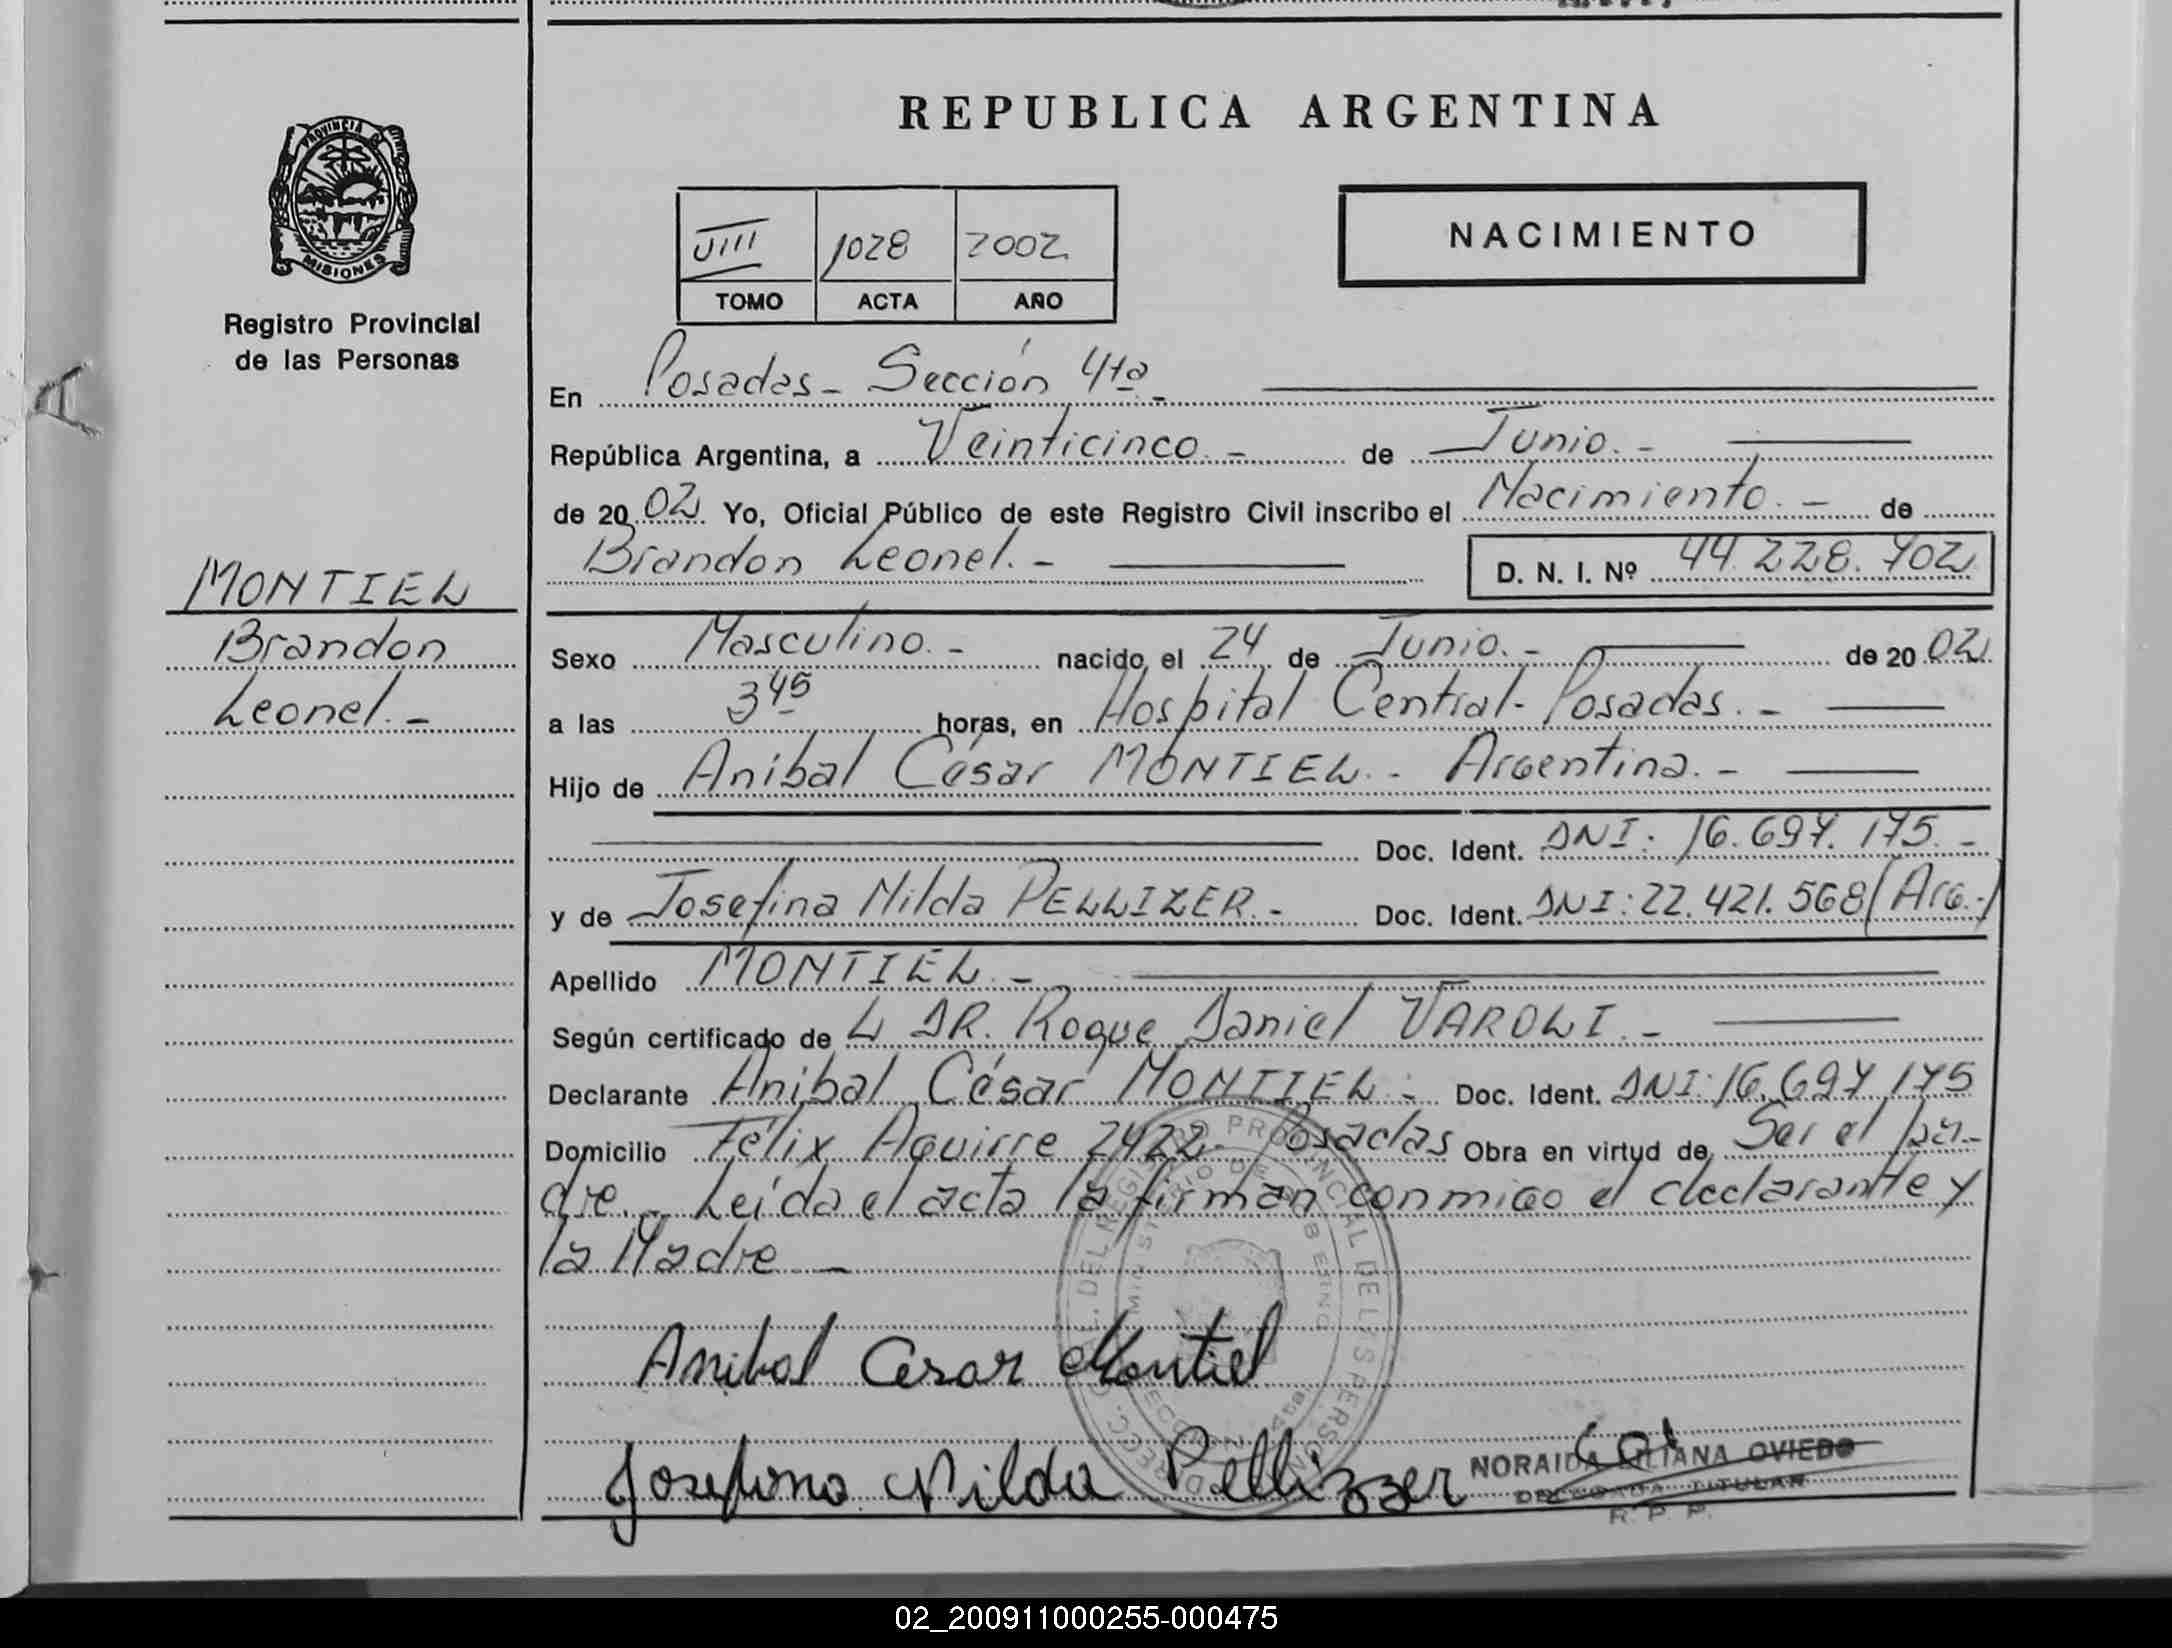 REPUBLICA ARGENTINA
PROVINCIA
MISIONES
Registro Provincial
de las Personas
VIII 1028 2002
TOMO ACTA AÑO
NACIMIENTO
En Posadas - Sección 4ta -
República Argentina, a Veinticinco. - de Junio. -
de 2002 Yo, Oficial Público de este Registro Civil inscribo el Nacimiento. - de
Brandon Leonel. - D. N. I. Nº 44.228.702
MONTIEL
Brandon
Leonel. -
Sexo Masculino. - nacido el 24 de Junio. - de 2002
a las 3 45 horas, en Hospital Central - Posadas. -
Hijo de Anibal César MONTIEL. - Argentina. -
Doc. Ident. DNI: 16.697.175. -
y de Josefina Nilda PELLIZER. - Doc. Ident. DNI: 22.421.568 (Arg.-)
Apellido MONTIEL. -
Según certificado de L DR. Roque Daniel VAROLI. -
Declarante Anibal César MONTIEL - Doc. Ident. DNI: 16.697.175
Domicilio Félix Aguirre 2422 - Posadas Obra en virtud de Ser el pa-
dre. - Leída el acta la firman conmigo el declarante y
la Madre -
Anibal Cesar Montiel
Josefina Nilda Pellizzer
NORAIDA LILIANA OVIEDO
DELEGADA TITULAR
R. P. P.
02_200911000255-000475